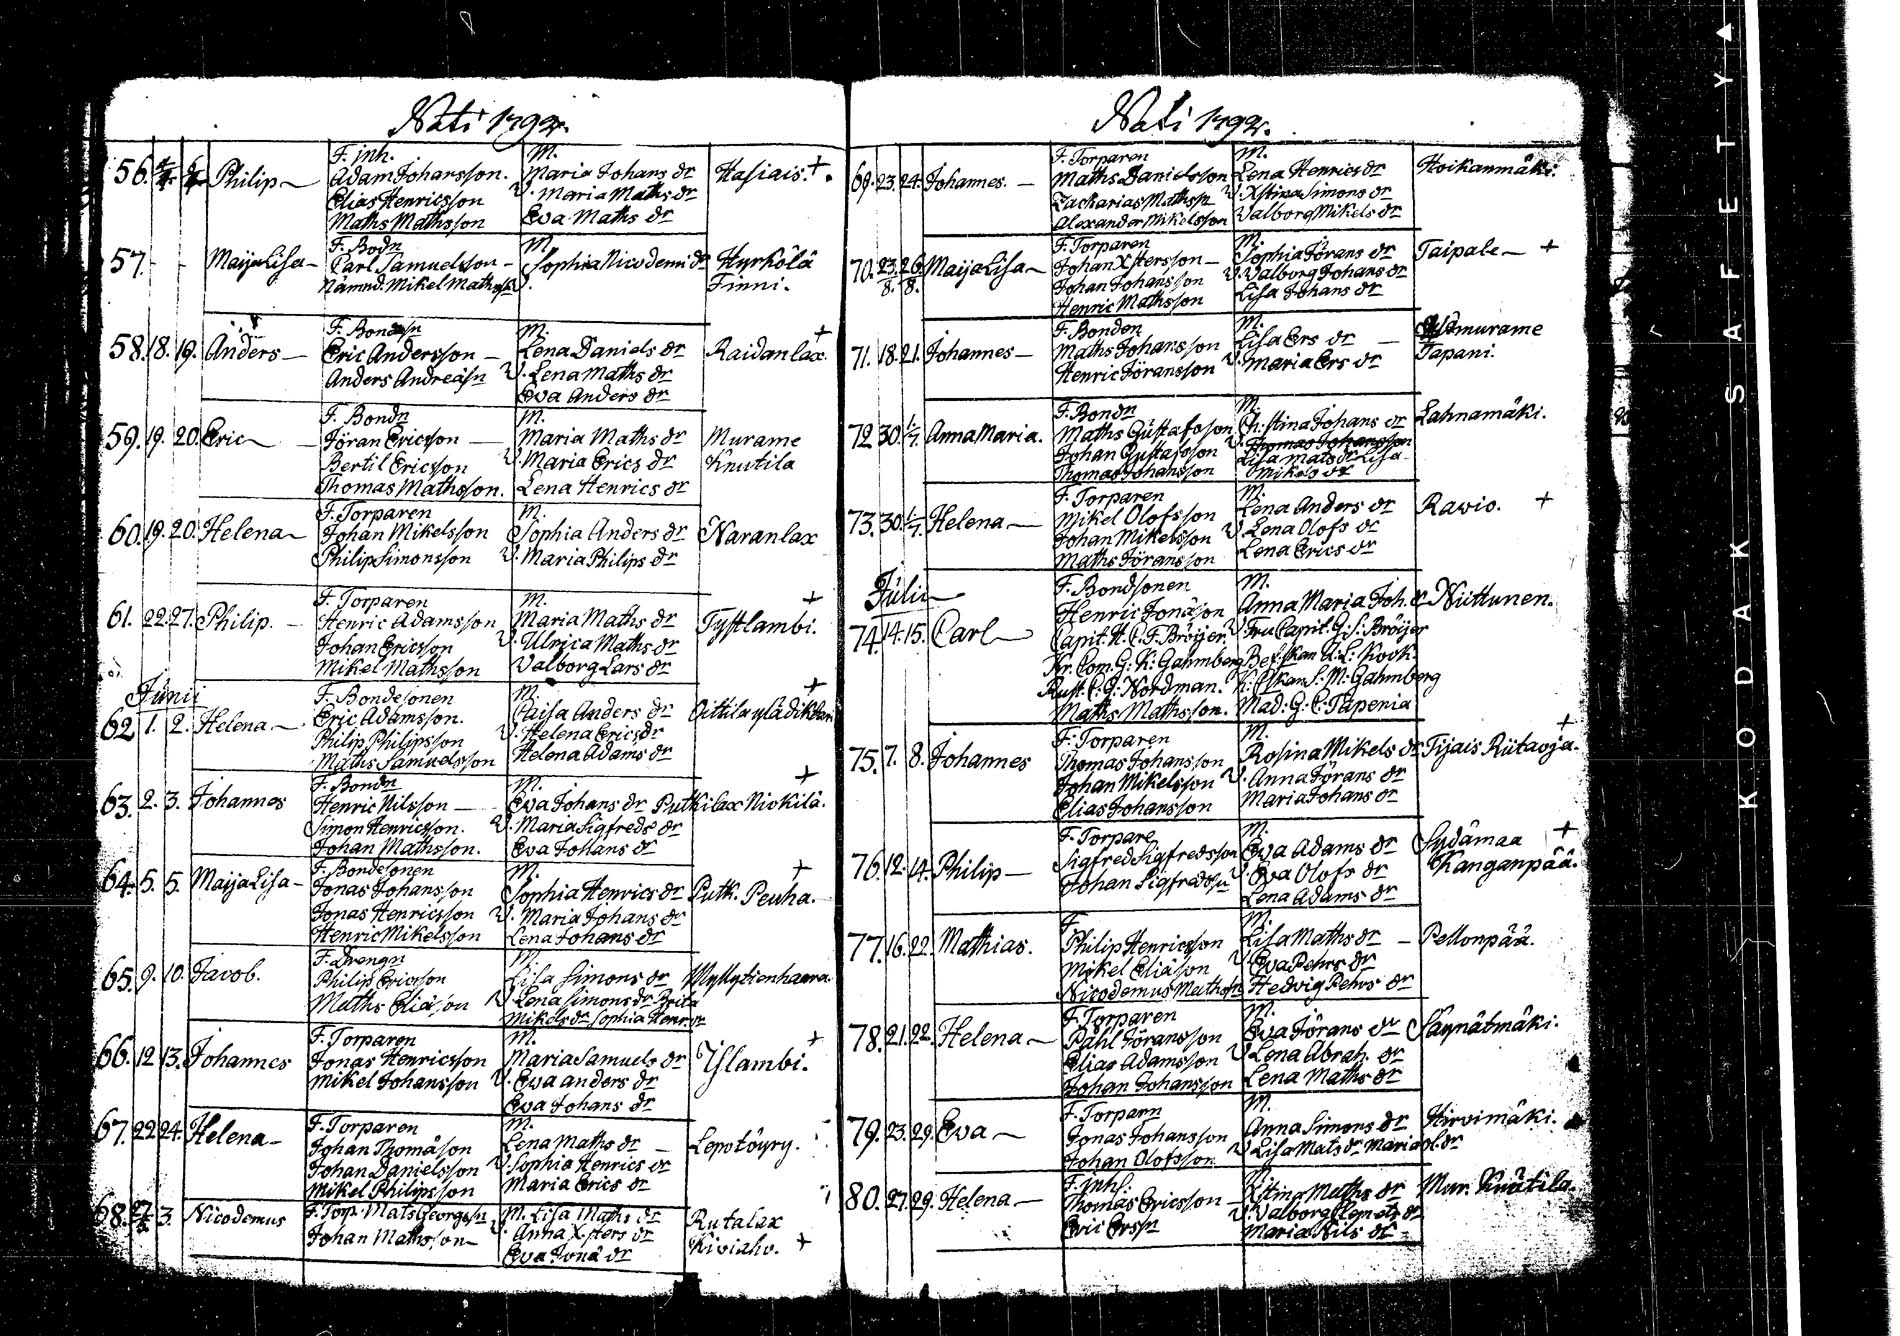 Nati 1792.
F. Inh. M.
56. Philip Adam Johansson. Maria Johans dr Hasiais. +
Elias Henricsson V. Maria Maths dr
Maths Mathsson Eva Maths dr
F. Bodn M.
57. - - Maija Lisa Carl Samuelsson - Sophia Nicodemi dr Hyrkölä
Nämnd. Mikel Mathss V. Finni.
F. Bondn M. +
58. 18. 19. Anders - Eric Andersson - Lena Daniels dr Raidanlax.
Anders Andreäsn V. Lena Maths dr
Eva Anders dr
F. Bondn M.
59. 19. 20. Eric - Jöran Ericsson - Maria Maths dr Murame
Bertil Ericsson V. Maria Erics dr Knutila
Thomas Mathsson. Lena Henrics dr
F. Torparen M.
60. 19. 20. Helena Johan Mikelsson Sophia Anders dr Naranlax
Philip Simonsson V. Maria Philips dr
F. Torparen M. +
61. 22. 27. Philip. - Henric Adamsson Maria Maths dr Tystlambi.
Johan Ericsson V. Ulrica Maths dr
Mikel Mathsson Valborg Lars dr
Junii F. Bondesonen M. +
62 1. 2. Helena - Eric Adamsson. Caisa Anders dr Oittila
Philip Philipsson V. Helena Erics dr
Maths Samuelsson Helena Adams dr
F. Bondn M. +
63. 2. 3. Johannes Henric Nilsson - Eva Johans dr Putkilax Nickilä.
Simon Henricsson. V. Maria Sigfreds dr
Johan Mathsson. Eva Johans dr
F. Bondesonen M. +
64. 5. 5. Maija Lisa - Jonas Johansson Sophia Henrics dr Putk. Peuha.
Jonas Henricsson V. Maria Johans dr
Henric Mikelsson Lena Johans dr
F. Drengn M.
65. 9. 10. Jacob. Philip Ericsson Lisa Simons dr Myllytienhaara.
Maths Eliasson V. Lena Simons dr Brita
Mikels dr Sophia Henr. dr
F. Torparen M. +
66. 12 13. Johannes Jonas Henricsson Maria Samuels dr Yslambi.
Mikel Johansson V. Eva Anders dr
Eva Johans dr
F. Torparen M.
67. 22 24. Helena - Johan Thomäson Lena Maths dr - Lepotöyry.
Johan Danielsson V. Sophia Henrics dr
Mikel Philipsson Maria Erics dr
68. 27 3. Nicodemus F. Torp. Mats Georgssn M. Lisa Maths dr Rutalax
Johan Mathsson V. Anna Xsters dr Kiviaho. +
Eva Jonä dr
Nati 1792.
F. Torparen M.
69. 23. 24. Johannes. - Maths Danielsson Lena Henrics dr Hoikanmäki.
Zacharias Mathssn V. Xstina Simons dr
Alexander Mikelsson Valborg Mikels dr
F. Torparen M.
70. 23. 26. Maija Lisa Johan Xstersson - Sophia Jörans dr Taipale - +
8. 8. Johan Johansson V. Valborg Johans dr
Henric Mathsson Lisa Johans dr
F. Bonden M.
71. 18. 21. Johannes - Maths Johansson Lisa Ers dr - murame
Henric Jöransson V. Maria Ers dr Tapani.
F. Bondn M.
72 30. 1/7. Anna Maria. Maths Gustafsson Christina Johans dr Lahnamäki.
Johan Gustafsson V. Thomas Johansson
Thomas Johansson Lisa Mats dr Lisa
Mikels dr
F. Torparen M.
73. 30. 1/7. Helena - Mikel Olofsson Lena Anders dr Rawio. +
Johan Mikelsson V. Lena Olofs dr
Maths Jöransson Lena Erics dr
Julii F. Bondsonen M.
Henric Jonäson Anna Maria Joh. dr Niittunen.
74. 14. 15. Carl Capit. H. C. F. Bröijer V. Fru Capit. G: S: Bröijer
Kr. Com. G: K: Gahmberg Bef:skan U: L: Kock
Rust. C. G: Nordman. K. C:skan S: M: Gahmberg
Maths Mathsson. Mad: G: C: Tapenia
F. Torparen M. +
75. 7. 8. Johannes Thomas Johansson Rosina Mikels dr Tijais Riitaoja.
Johan Mikelsson V. Anna Jörans dr
Elias Johansson Maria Johans dr
F. Torpare M.
76. 12. 14. Philip - Sigfred Sigfredsson Eva Adams dr Sydämaa +
Johan Sigfredssn V. Eva Olofs dr Kanganpää.
Lena Adams dr
F. M.
77. 16. 22. Mathias. Philip Henricsson Lisa Maths dr - Pellonpää.
Mikel Eliäson V. Eva Pehrs dr
Nicodemus Mathssn Hedvig Pehrs dr
F. Torparen M.
78. 21. 22. Helena - Påhl Jöransson Eva Jörans dr Säynätmäki.
Elias Adamsson V. Lena Abrah. dr
Johan Johansson Lena Maths dr
F. Torparn M.
79. 23. 29. Eva - Jonas Johansson Anna Simons dr Hirvimäki.
Johan Olofsson V. Lisa Mats dr Maria Ol. dr
F. Inh. M.
80. 27. 29. Helena - Thomas Ericsson - Xstina Maths dr Mur. Knutila.
Eric Erssn V. Valborg Clemets dr
Maria Nils dr -
KODAK SAFETY ▲